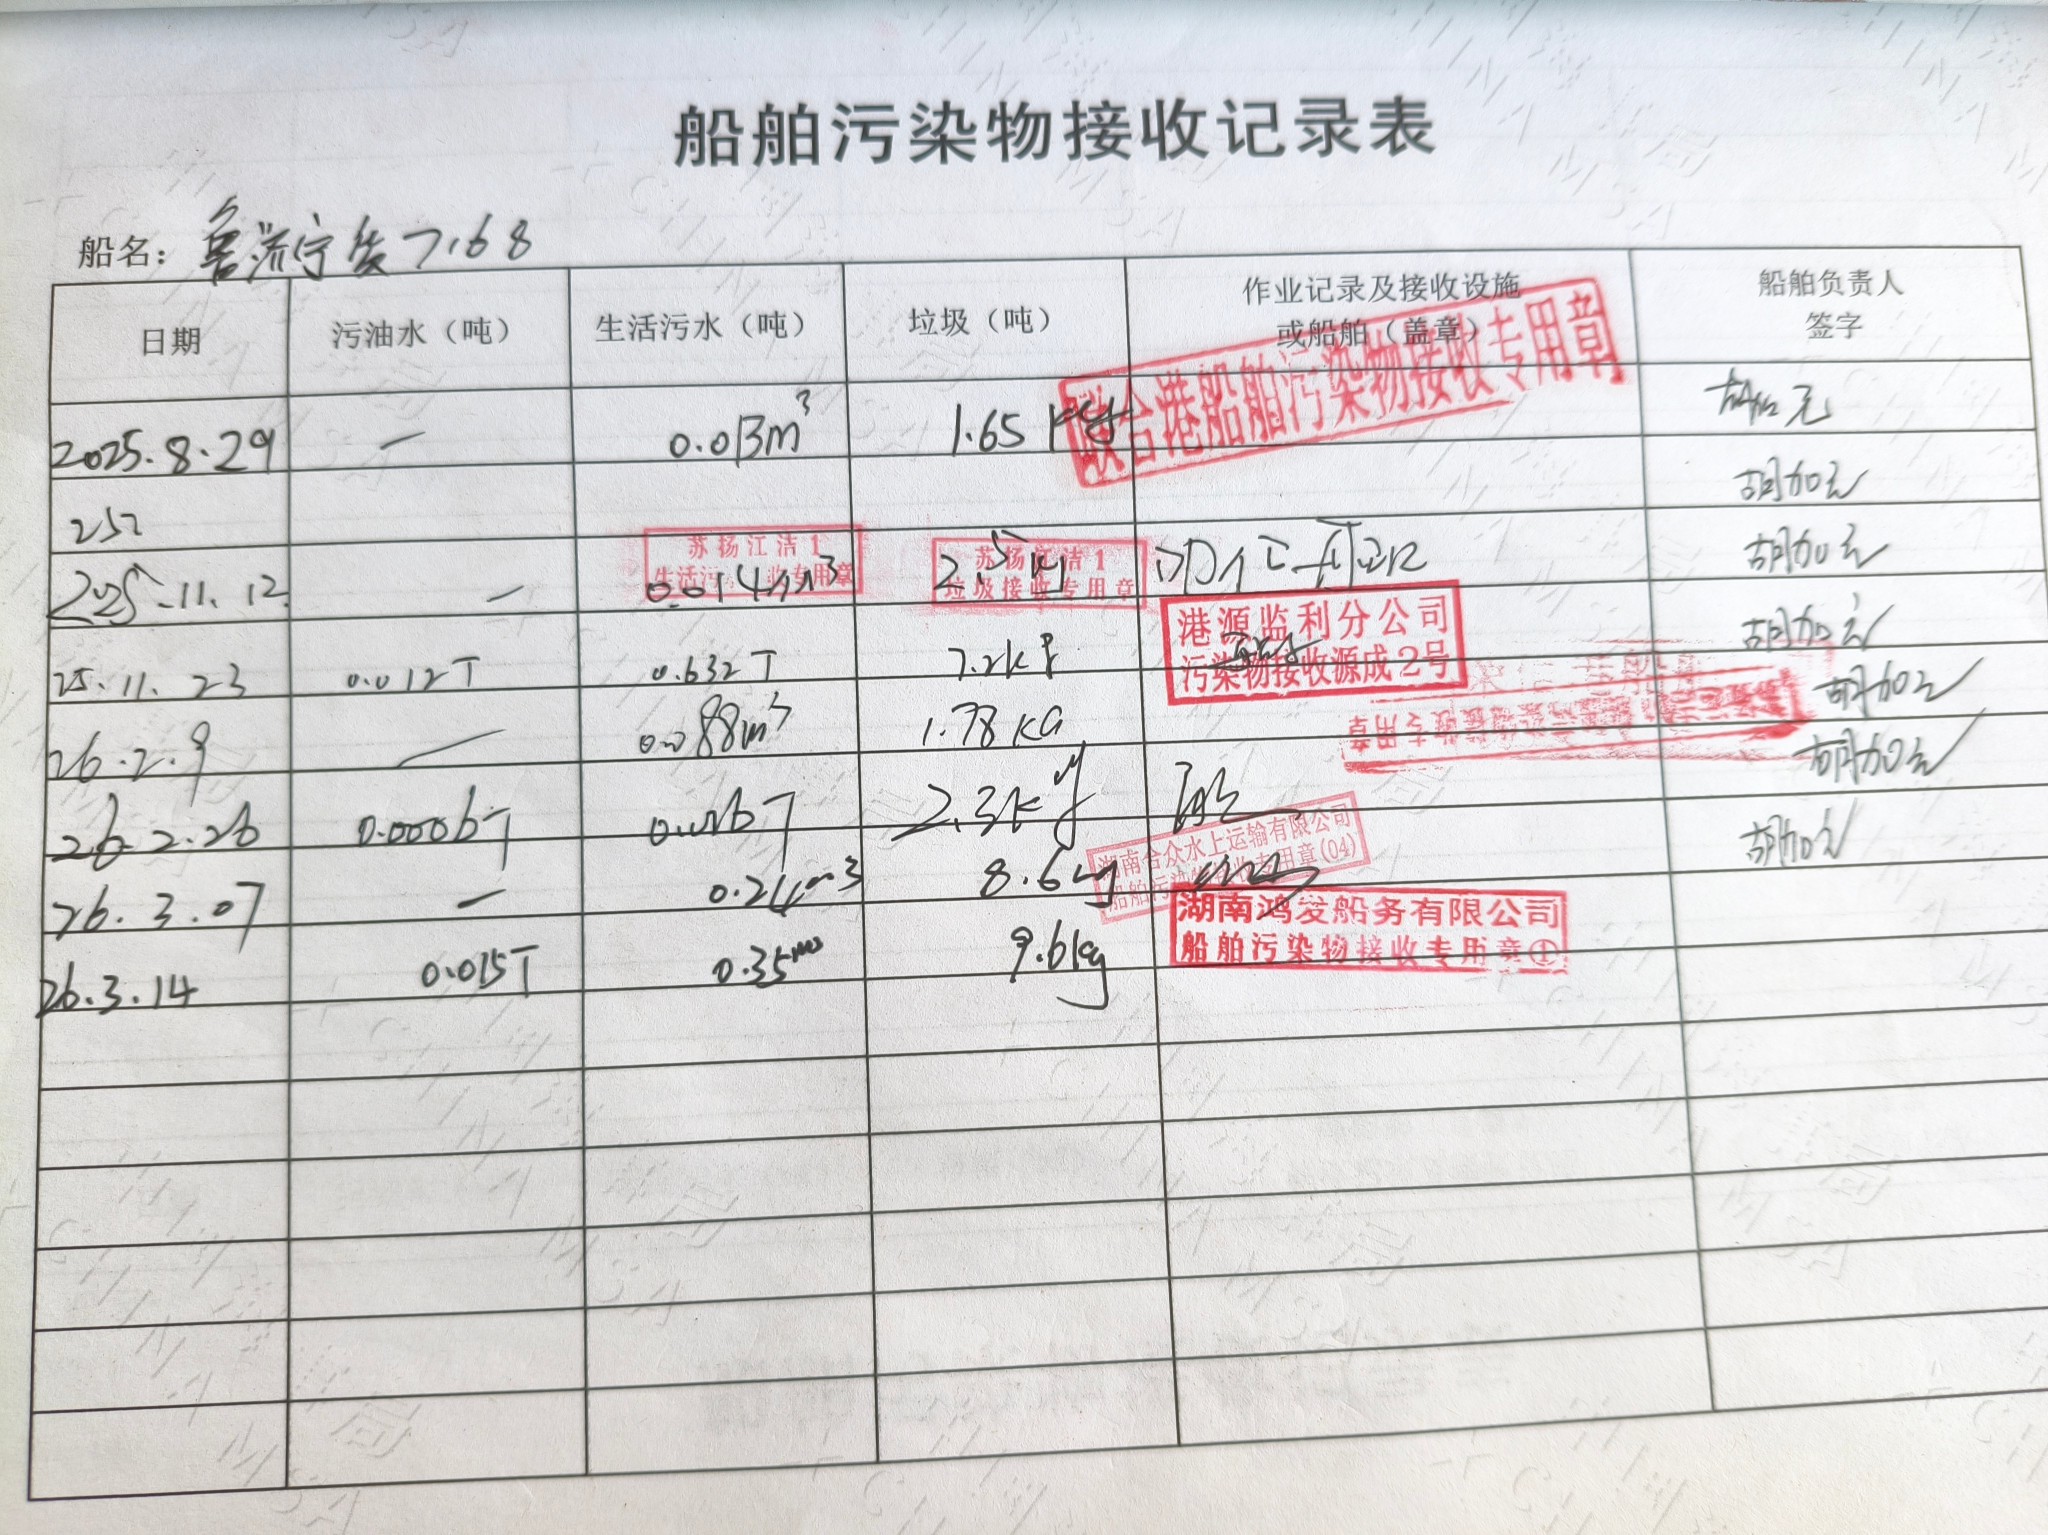 船舶污染物接收记录表
船名：鲁济宁货7168
日期 污油水（吨） 生活污水（吨） 垃圾（吨） 作业记录及接收设施或船舶（盖章） 船舶负责人签字
联合港船舶污染物接收专用章
2025.8.29 — 0.013m³ 1.65 kg
252 胡加元
苏扬江洁1
生活污 收专用章
苏扬江洁1
垃圾接收专用章
2025.11.12. — 0.014m³ 2.5kg 胡加元
港源监利分公司
污染物接收源成2号
25.11.23 0.012T 0.632T 7.2kg 胡加元
专用章
26.2.9 — 0.088m³ 1.78KG 胡加元
26.2.26 0.0006T 0.026T 2.3kg 胡加元
湖南合众水上运输有限公司
船舶污染物接收专用章(04)
26.3.07 — 8.6kg 胡加元
湖南鸿发船务有限公司
船舶污染物接收专用章①
26.3.14 0.015T 0.35m³ 9.6kg